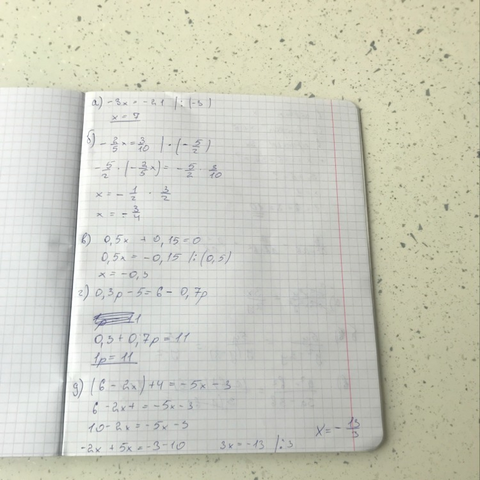 а) -3x = -21 | : (-3)
x = 7
б) -2/5 x = 3/10 | · (-5/2)
-5/2 · (-2/5 x) = -5/2 · 3/10
x = -1/2 · 3/2
x = -3/4
в) 0,5x + 0,15 = 0
0,5x = -0,15 | : (0,5)
x = -0,3
г) 0,3p - 5 = 6 - 0,7p
0,3 + 0,7p = 11
1p = 11
д) (6 - 2x) + 4 = -5x - 3
6 - 2x + = -5x - 3
10 - 2x = -5x - 3
-2x + 5x = -3 - 10 3x = -13 | : 3 x = -13/3